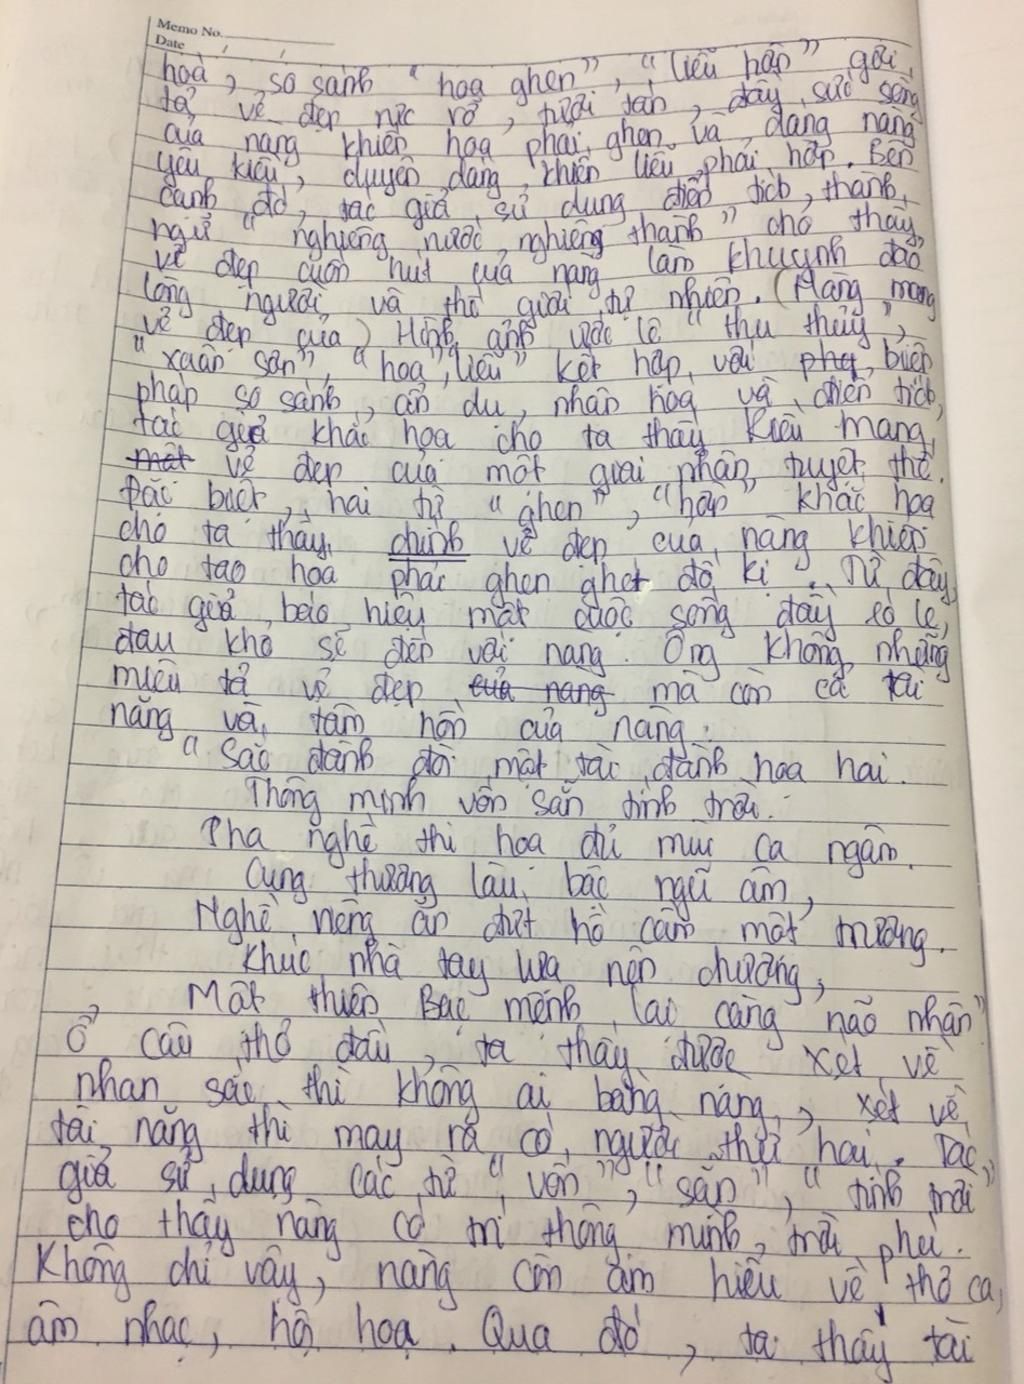 Memo No.
Date / /
hoá, so sánh "hoa ghen", "liễu hờn" gợi
tả vẻ đẹp rực rỡ, tươi tắn, đầy sức sống
của nàng khiến hoa phải ghen và dáng nàng
yêu kiều, duyên dáng khiến liễu phải hờn. Bên
cạnh đó, tác giả sử dụng điển tích, thành
ngữ "nghiêng nước nghiêng thành" cho thấy
vẻ đẹp cuốn hút của nàng làm khuynh đảo
lòng người và thế giới tự nhiên. (Nàng mang
vẻ đẹp của) Hình ảnh ước lệ "thu thủy",
"xuân sơn", "hoa", liễu" kết hợp với biện
pháp so sánh, ẩn dụ, nhân hoá và điển tích,
tác giả khắc hoạ cho ta thấy Kiều mang
một vẻ đẹp của một giai nhân tuyệt thế.
Đặc biệt, hai từ "ghen", "hờn" khắc hoạ
cho ta thấy chính vẻ đẹp của nàng khiến
cho tạo hoá phác ghen ghét đố kị. Từ đây,
tác giả báo hiệu một cuộc sống đầy éo le,
đau khổ sẽ đến với nàng. Ông không những
miêu tả vẻ đẹp của nàng mà còn cả tài
năng và tâm hồn của nàng:
"Sắc đành đòi một tài đành hoạ hai.
Thông minh vốn sẵn tính trời.
Pha nghề thi hoạ đủ mùi ca ngâm.
Cung thương lầu bậc ngũ âm,
Nghề riêng ăn đứt hồ cầm một trương.
Khúc nhà tay lựa nên chương,
Một thiên Bạc mệnh lại càng não nhân"
Ở câu thơ đầu, ta thấy được xét về
nhan sắc thì không ai bằng nàng, xét về
tài năng thì may ra có người thứ hai. Tác
giả sử dụng các từ "vốn", "sẵn", "tính trời"
cho thấy nàng có trí thông minh trời phú.
Không chỉ vậy, nàng còn am hiểu về thơ ca,
âm nhạc, hội hoạ. Qua đó, ta thấy tài